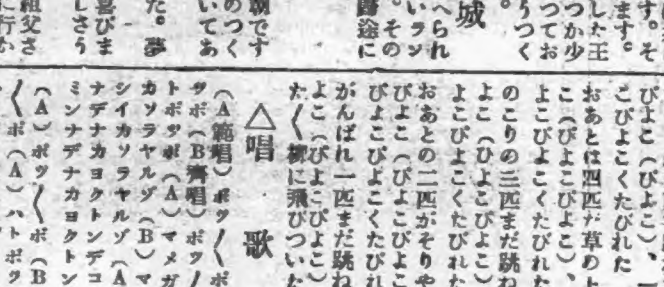 す。そ
ます。
した王
つか少
つてお
うつく
城
へられ
いラン
。その
踏途に
朝です
のつく
いてあ
た。夢
喜びま
しさう
祖父さ
に行か
ぴよこ（ぴよこ）、一
こぴよこくたびれた
おあとは四匹だ草の上
こ（ぴよこぴよこ）、
よこぴよこくたびれた
のこりの三匹まだ跳ね
よこ（ひよこぴよこ）
よこぴよこくたびれた
おあとの二匹がそりや
ぴよこ（ぴよこぴよこ
ぴよこぴよこくたびれ
がんばれ一匹まだ跳ね
よこ（ぴよこぴよこ）
た〱柳に飛びついた
△唱歌
（A範唱）ポツ〱ポ
ツポ（B齊唱）ポツ〱
トポツポ（A）マメガ
カソラヤルゾ（B）マ
シイカソラヤルゾ（A
ナデナカヨクトンデコ
ミンナデナカヨクトン
（A）ポツ〱ポ（B
〱ポ（A）ハトポツ